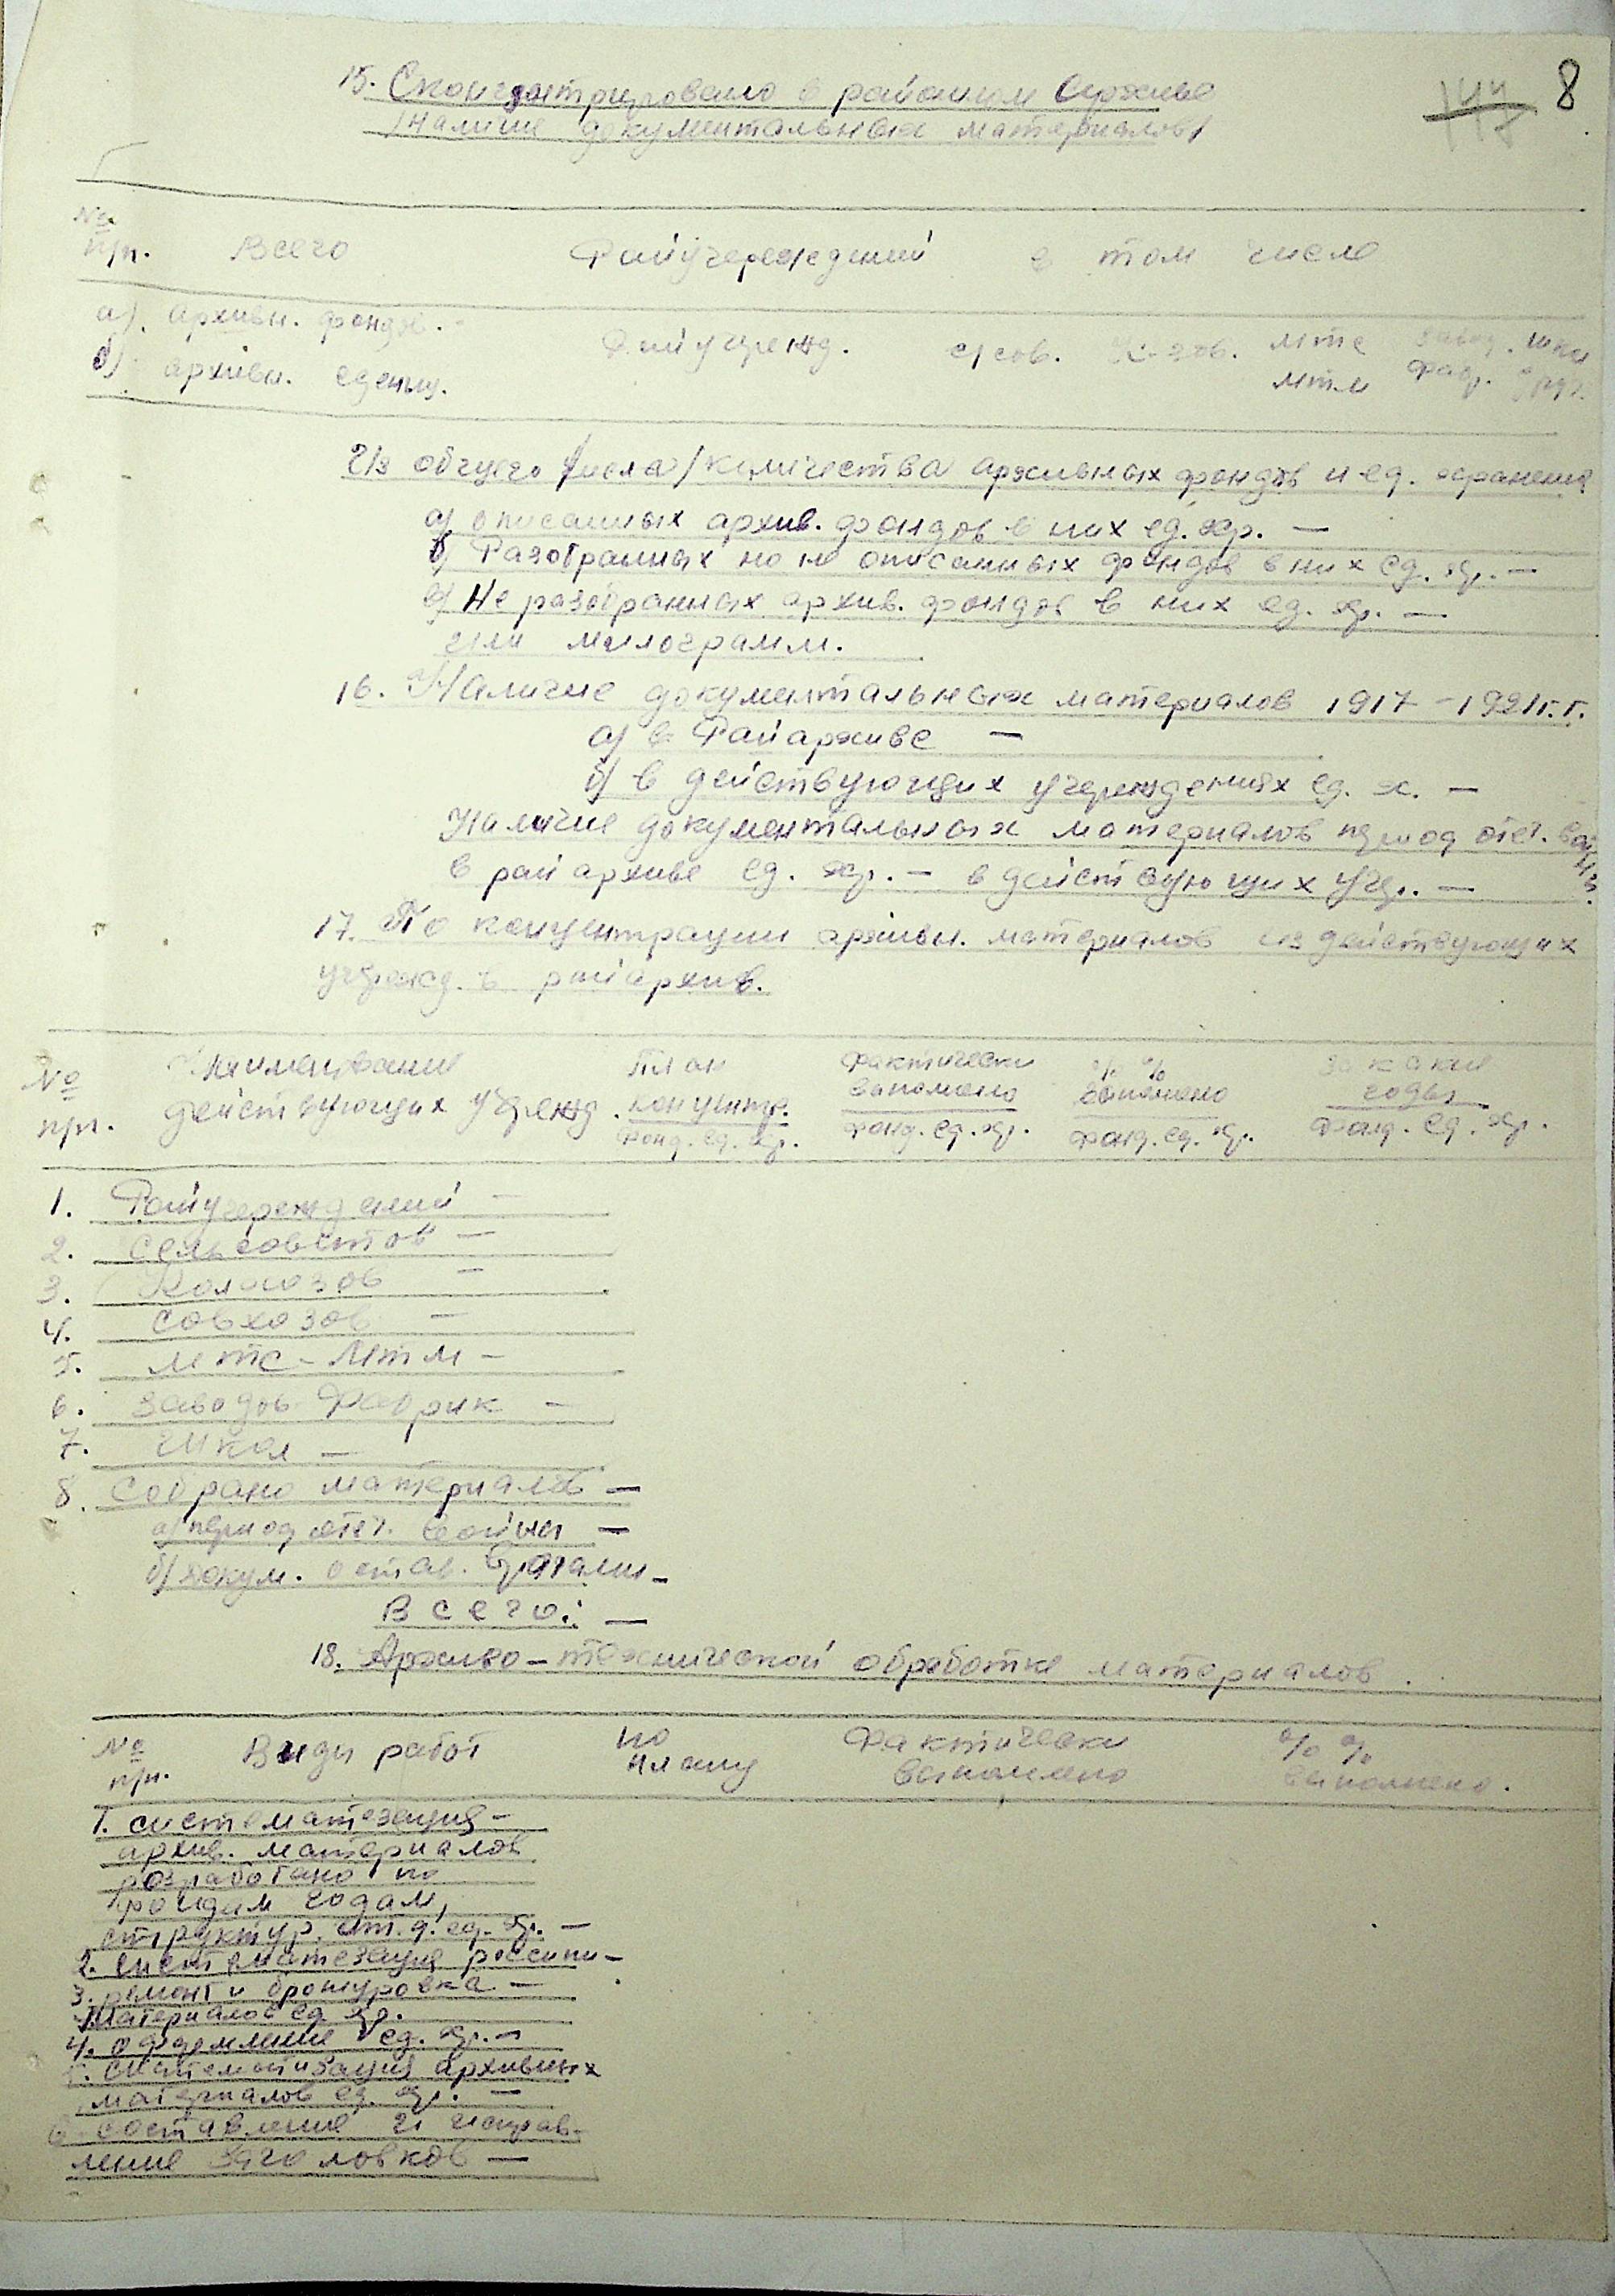 8
144
15. Сконцентрировано в районном Архиве
/наличие документальных материалов/
№ п/п. Всего Райучереждений в том числе
а). архивн. фондов. -
б). архивн. едениц. Райучрежд. с/сов. к-зов. мтс мтм завод. фабр. школ и друг.
Из общего числа/количества архивных фондов и ед. хранения
а) описанных архив. фондов в них ед. хр. —
б) Разобранных но не описанных фондов в них ед. хр. —
в) Не разобранных архив. фондов в них ед. хр. —
или килограмм.
16. Наличие документальных материалов 1917 - 1921 г.г.
а) в Райархиве —
б) в действующих учереждениях ед. х. —
Наличие документальных материалов период отеч. войны
в райархиве ед. хр. — в действующих учр. —
17. По концентрации архивн. материалов из действующих
учрежд. в райархив.
№ п/п. Наименование действующих учрежд. План концентр. фонд. ед. хр. Фактически выполнено фонд. ед. хр. % % выполнено фонд. ед. хр. за какие годы фонд. ед. хр.
1. Райучереждений —
2. сельсоветов —
3. Колхозов —
4. совхозов —
5. мтс - мтм —
6. заводов фабрик —
7. школ —
8. собрано материалов —
а) период отеч. войны —
б) докум. остав.
Всего: —
18. Архиво-технической обработке материалов.
№ п/п. Виды работ по плану Фактически выполнено % % выполнено.
1. систематезация —
архив. материалов
разработано по
фондам годам,
структур. ит.д. ед. хр. —
2. систематезация россыпи —
3. ремонт и брошуровка —
материалов ед. хр.
4. оформление ед. хр. —
5. систематизация архивных
материалов ед. хр. —
6. составление и исправ-
ление заголовков —